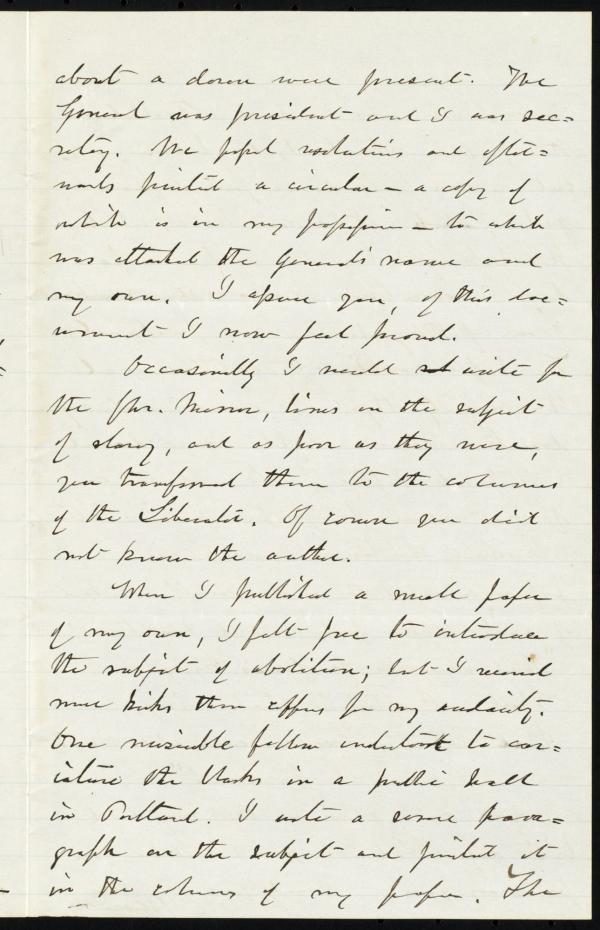 about a dozen were present. The
General was president and I was sec=
retary. We passed resolutions and after=
wards printed a circular — a copy of
which is in my possession — to which
was attached the General's name and
my own. I assure you, of this doc=
ument I now feel proud.
Occasionally I would write for
the Chr. Mirror, lines on the subject
of slavery, and as poor as they were,
you transferred them to the columns
of the Liberator. Of course you did
not know the author.
When I published a small paper
of my own, I felt free to introduce
the subject of abolition; but I received
more kicks than coppers for my audacity.
One miserable fellow undertook to car=
icature the blacks in a public hall
in Portland. I wrote a severe para=
graph on the subject and printed it
in the columns of my paper. The